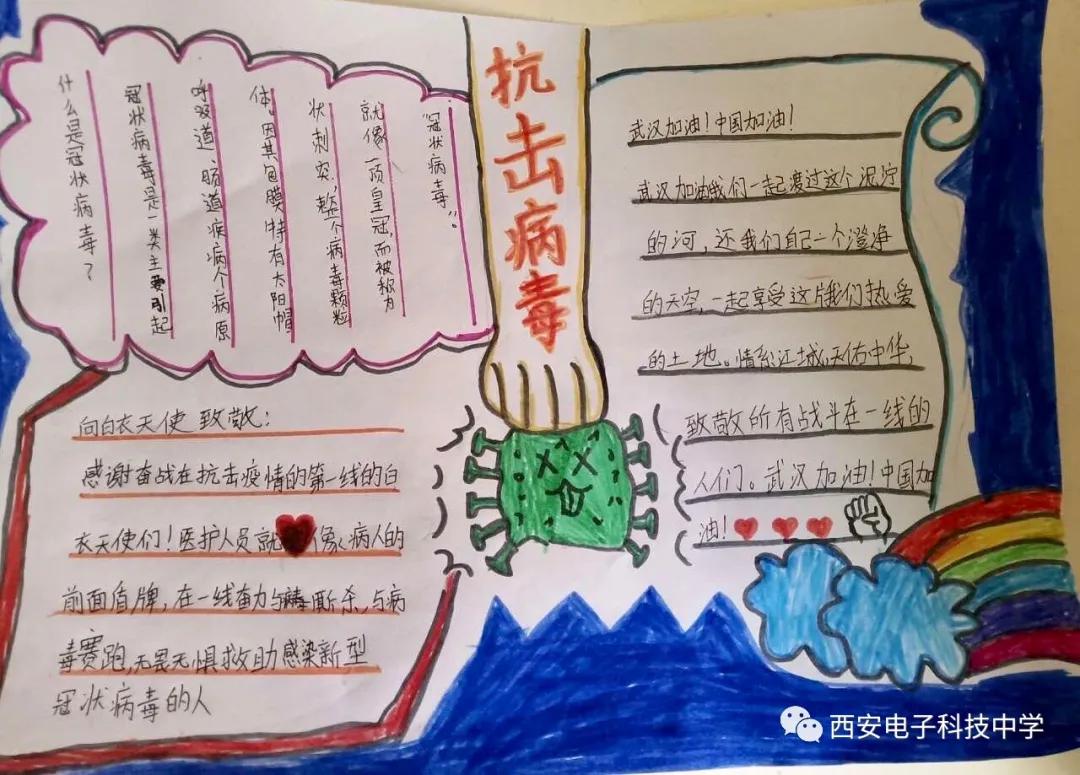 抗击病毒
什么是冠状病毒?
冠状病毒是一类主要引起
呼吸道、肠道疾病个病原
体。因其包膜特有太阳帽
状刺突,整个病毒颗粒
就像一顶皇冠,而被称为
“冠状病毒”。
向白衣天使致敬:
感谢奋战在抗击疫情的第一线的白
衣天使们!医护人员就像病人的
前面盾牌,在一线奋力与病毒厮杀,与病
毒赛跑,无畏无惧救助感染新型
冠状病毒的人
武汉加油!中国加油!
武汉加油我们一起渡过这个泥泞
的河,还我们自己一个澄净
的天空,一起享受这片我们热爱
的土地。情系江城,天佑中华,
致敬所有战斗在一线的
人们。武汉加油!中国加
油!
西安电子科技中学